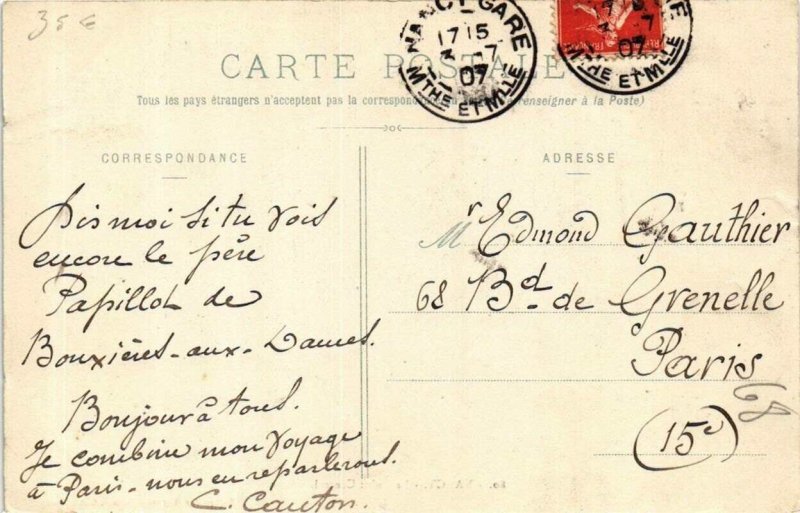 35 €
NANCY-GARE
1715
3 -7
07
MTHE ET MLLE
GARE
-7
07
MTHE ET MLLE
CARTE POSTALE
Tous les pays étrangers n'acceptent pas la correspondance renseigner à la Poste)
CORRESPONDANCE
Dis moi si tu vois
encore le père
Papillot de
Bouxières-aux-Dames.
Bonjour à tous.
Je combine mon voyage
à Paris - nous en reparlerons.
C. Cauton.
ADRESSE
Mr Edmond Gauthier
68 Bd. de Grenelle
Paris
68
(15e)